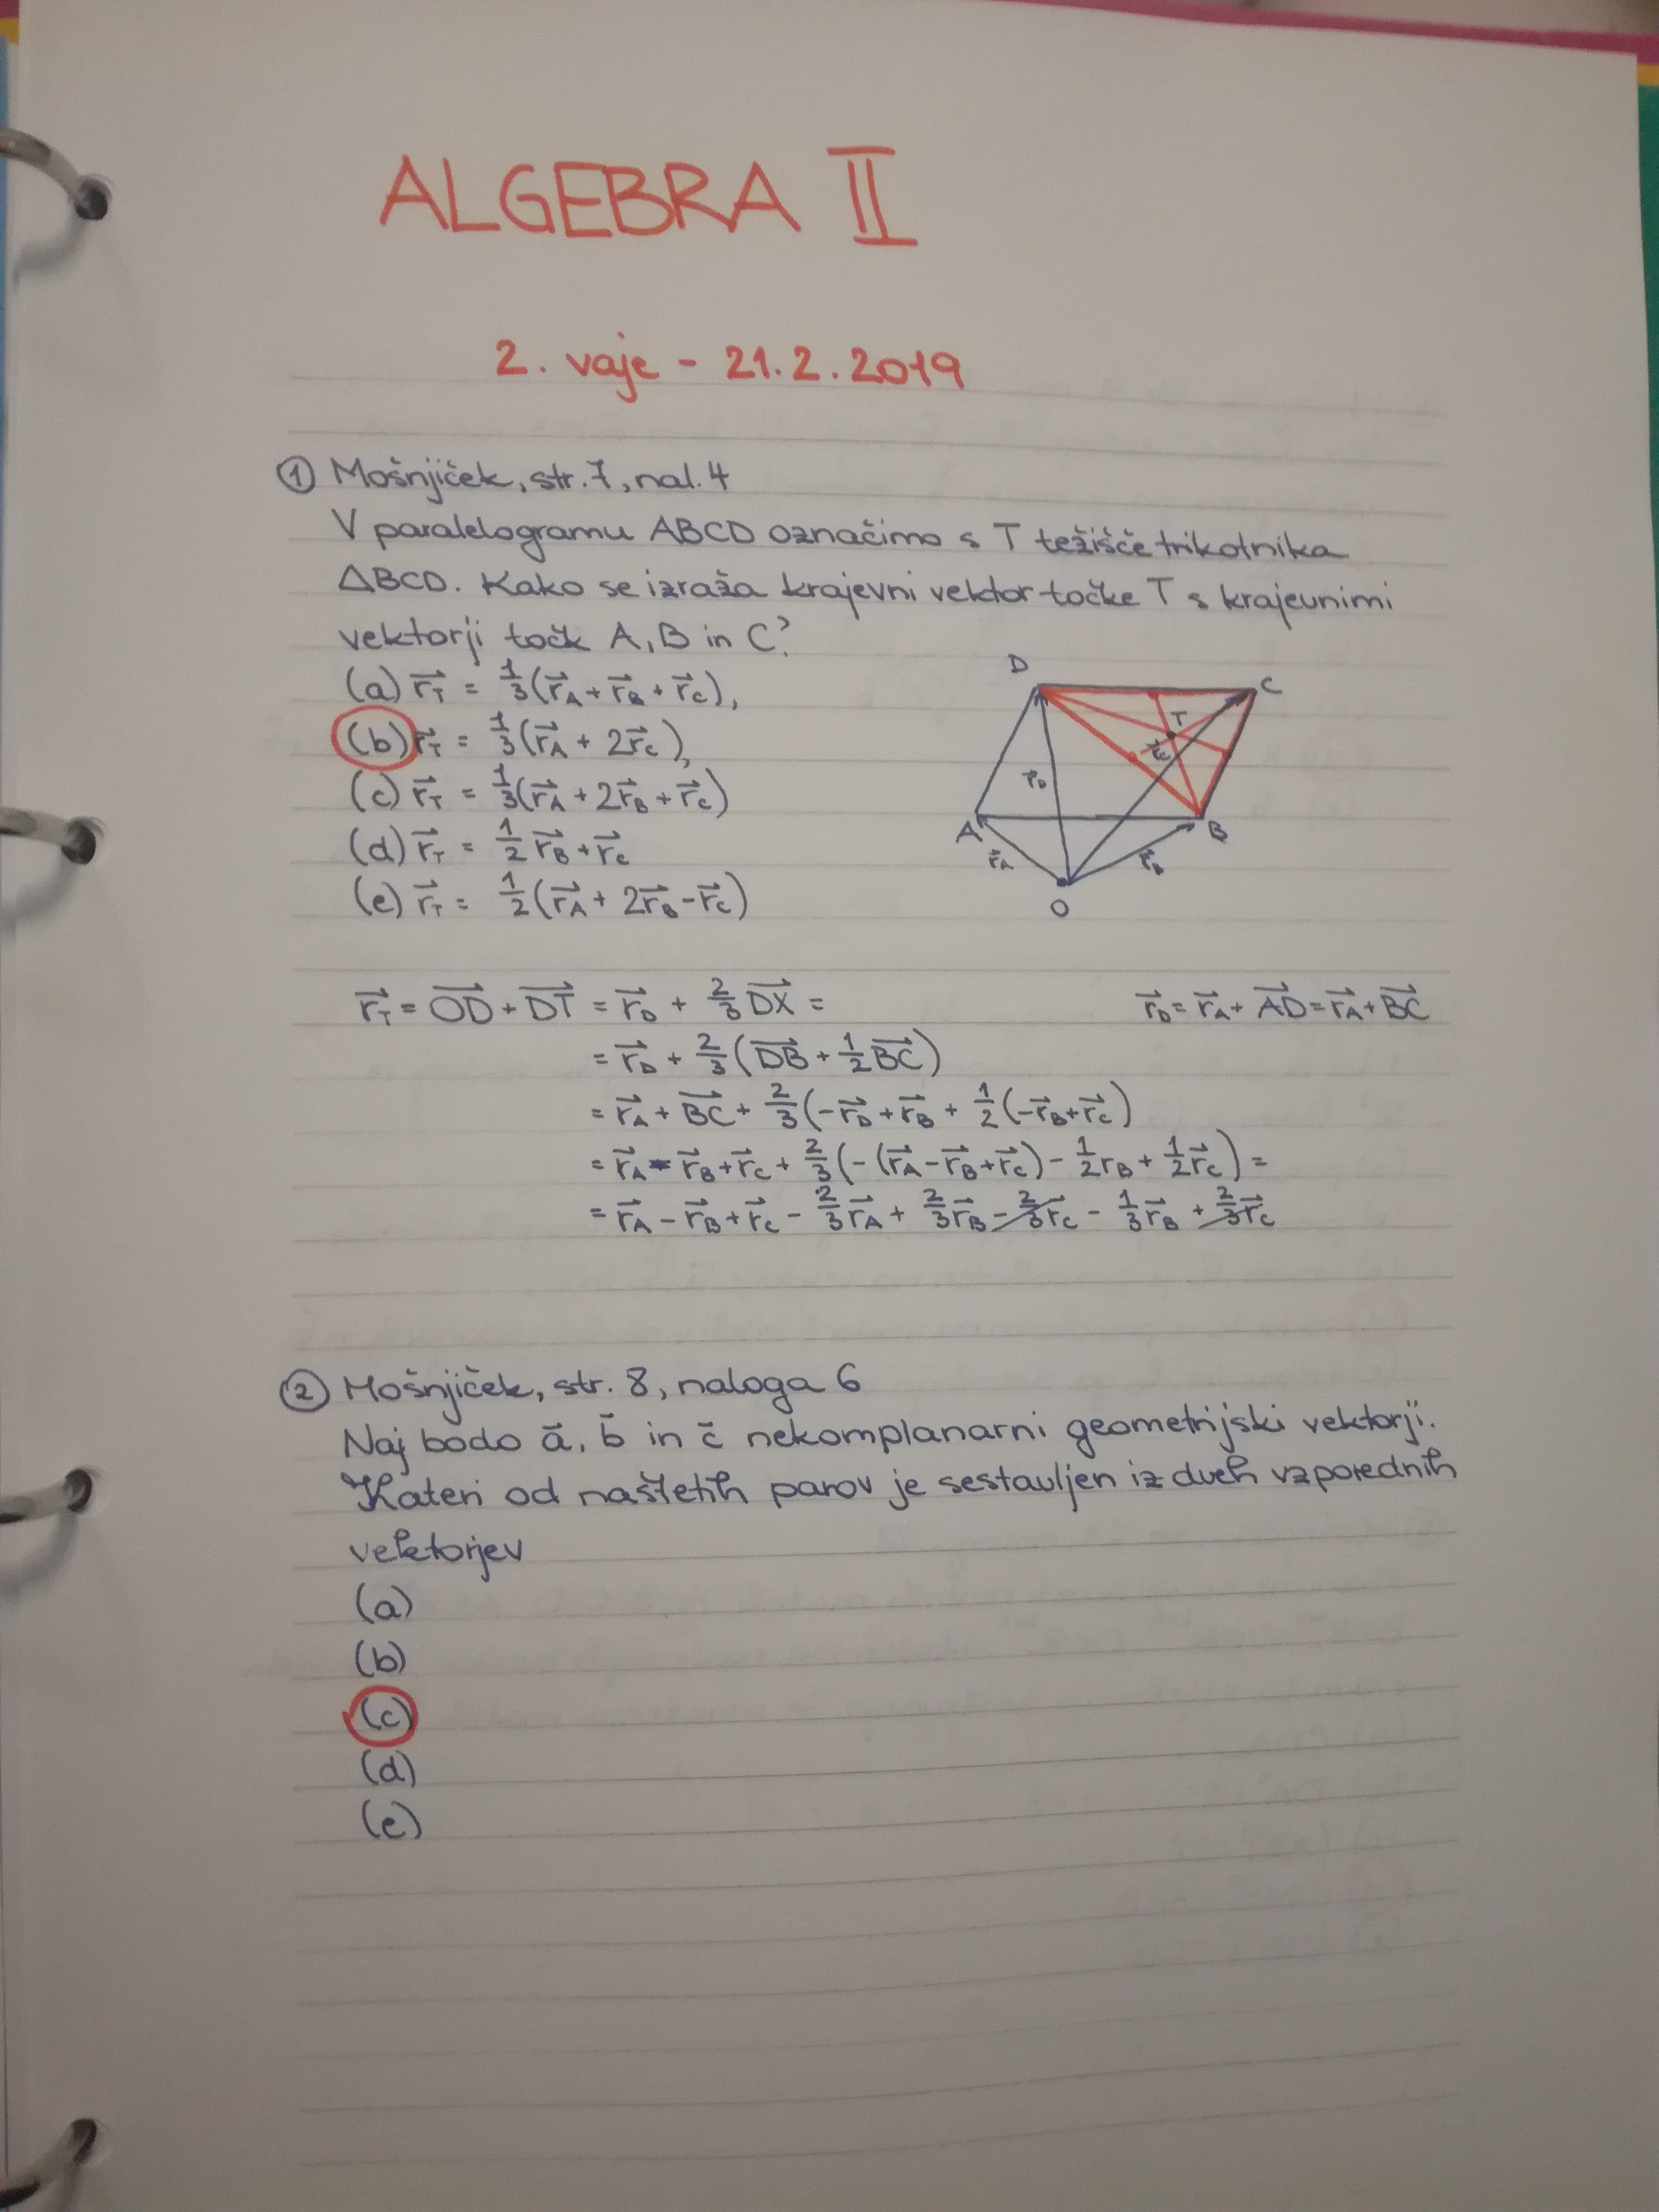 ALGEBRA II
2. vaje - 21.2.2019
① Mošnjiček, str. 7, nal. 4
V paralelogramu ABCD označimo s T težišče trikotnika
ΔBCD. Kako se izraža krajevni vektor točke T s krajevnimi
vektorji točk A, B in C?
(a) r⃗_T = 1/3(r⃗_A + r⃗_B + r⃗_C),
(b) r⃗_T = 1/3(r⃗_A + 2r⃗_C),
(c) r⃗_T = 1/3(r⃗_A + 2r⃗_B + r⃗_C)
(d) r⃗_T = 1/2 r⃗_B + r⃗_C
(e) r⃗_T = 1/2(r⃗_A + 2r⃗_B - r⃗_C)
D
C
T
r⃗_C
r⃗_D
A
B
r⃗_A
r⃗_B
O
r⃗_T = OD⃗ + DT⃗ = r⃗_D + 2/3 DX⃗ = r⃗_D = r⃗_A + AD⃗ = r⃗_A + BC⃗
= r⃗_D + 2/3(DB⃗ + 1/2 BC⃗)
= r⃗_A + BC⃗ + 2/3(-r⃗_D + r⃗_B + 1/2(-r⃗_B + r⃗_C)
= r⃗_A - r⃗_B + r⃗_C + 2/3(-(r⃗_A - r⃗_B + r⃗_C) - 1/2 r_B + 1/2 r⃗_C) =
= r⃗_A - r⃗_B + r⃗_C - 2/3 r⃗_A + 2/3 r⃗_B - 2/3 r⃗_C - 1/3 r⃗_B + 2/3 r⃗_C
② Mošnjiček, str. 8, naloga 6
Naj bodo a⃗, b⃗ in c⃗ nekomplanarni geometrijski vektorji.
Kateri od naštetih parov je sestavljen iz dveh vzporednih
vektorjev
(a)
(b)
(c)
(d)
(e)